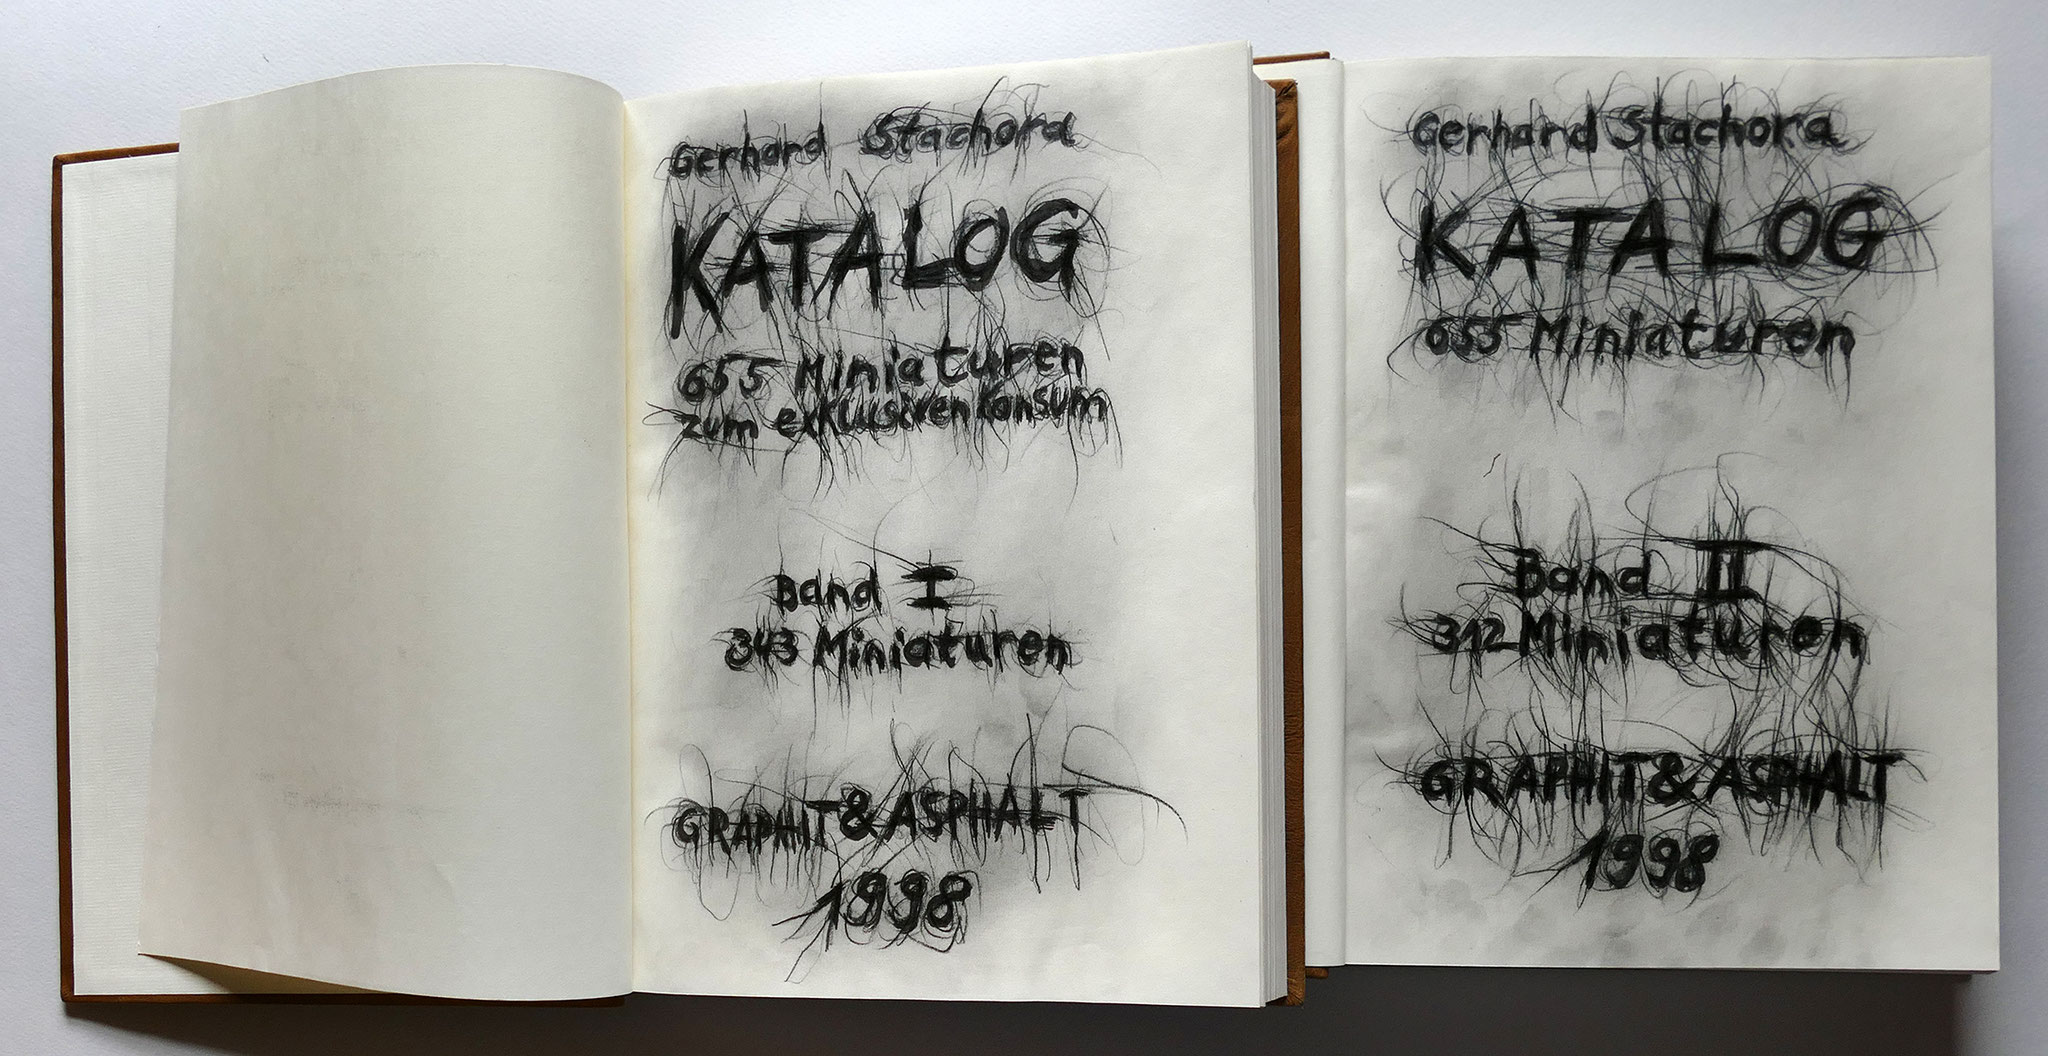 Gerhard Stachora
KATALOG
655 Miniaturen
zum exklusiven Konsum
Band I
343 Miniaturen
GRAPHIT & ASPHALT
1998
Gerhard Stachora
KATALOG
655 Miniaturen
Band II
312 Miniaturen
GRAPHIT & ASPHALT
1998